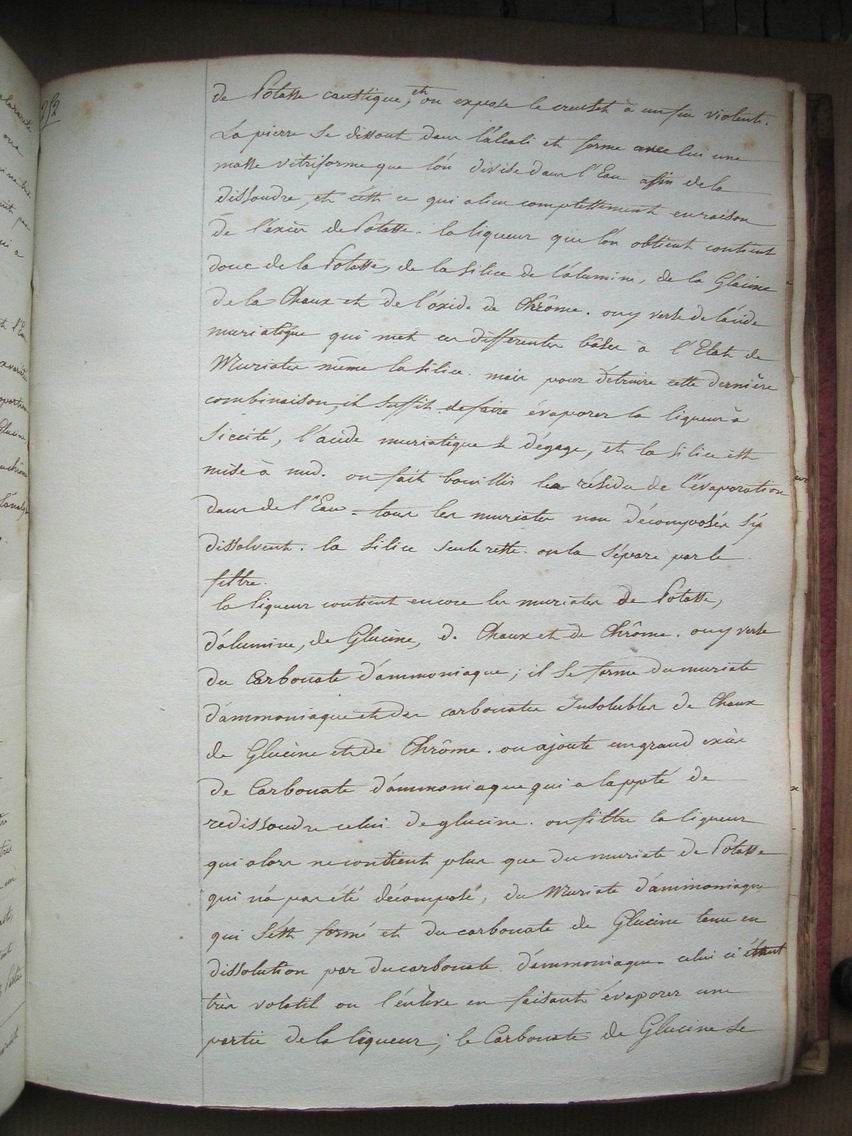 252
de Potasse caustique, et on expose le creuset à un feu violent.
La pierre se dissout dans l'alcali et forme avec lui une
masse vitriforme que l'on divise dans l'Eau afin de la
dissoudre, et c'est ce qui a lieu complettement en raison
de l'excès de Potasse. la liqueur que l'on obtient contient
donc de la Potasse, de la silice de l'alumine, de la Glucine
de la Chaux et de l'oxide de Chrôme. on y verse de l'acide
muriatique qui met ces differentes bâses à l'Etat de
Muriates même la silice. mais pour détruire cette dernière
combinaison, il suffit de faire évaporer la liqueur à
siccité, l'acide muriatique se dégage, et la silice est
mise à nud. on fait bouillir le résidu de l'évaporation
dans de l'Eau = tous les muriates non décomposés s'y
dissolvent. la silice seule reste. on la sépare par le
filtre.
la liqueur contient encore les muriates de Potasse,
d'alumine, de Glucine, de Chaux et de Chrôme. on y verse
du Carbonate d'ammoniaque; il se forme du muriate
d'ammoniaque et des carbonates Insolubles de Chaux
de Glucine et de Chrôme. on ajoute un grand excès
de Carbonate d'ammoniaque qui a la ppté de
redissoudre celui de glucine. on filtre la liqueur
qui alors ne contient plus que du muriate de Potasse
qui n'a pas été décomposé, du Muriate d'ammoniaque
qui s'est formé et du carbonate de Glucine tenu en
dissolution par du carbonate d'ammoniaque. celui ci étant
très volatil on l'enlève en faisant évaporer une
partie de la liqueur; le Carbonate de Glucine se